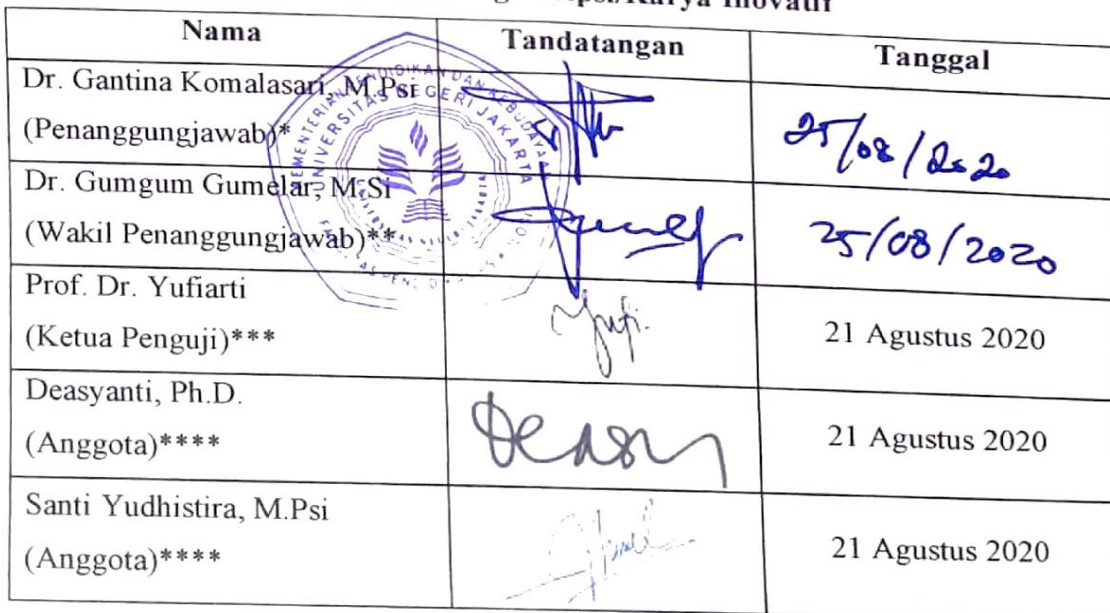 Karya Inovatif
Nama Tandatangan Tanggal
Dr. Gantina Komalasari, M.Psi
(Penanggungjawab)* 25/08/2020
Dr. Gumgum Gumelar, M.Si
(Wakil Penanggungjawab)** 25/08/2020
Prof. Dr. Yufiarti
(Ketua Penguji)*** 21 Agustus 2020
Deasyanti, Ph.D.
(Anggota)**** 21 Agustus 2020
Santi Yudhistira, M.Psi
(Anggota)**** 21 Agustus 2020
KEMENTERIAN PENDIDIKAN DAN KEBUDAYAAN
UNIVERSITAS NEGERI JAKARTA